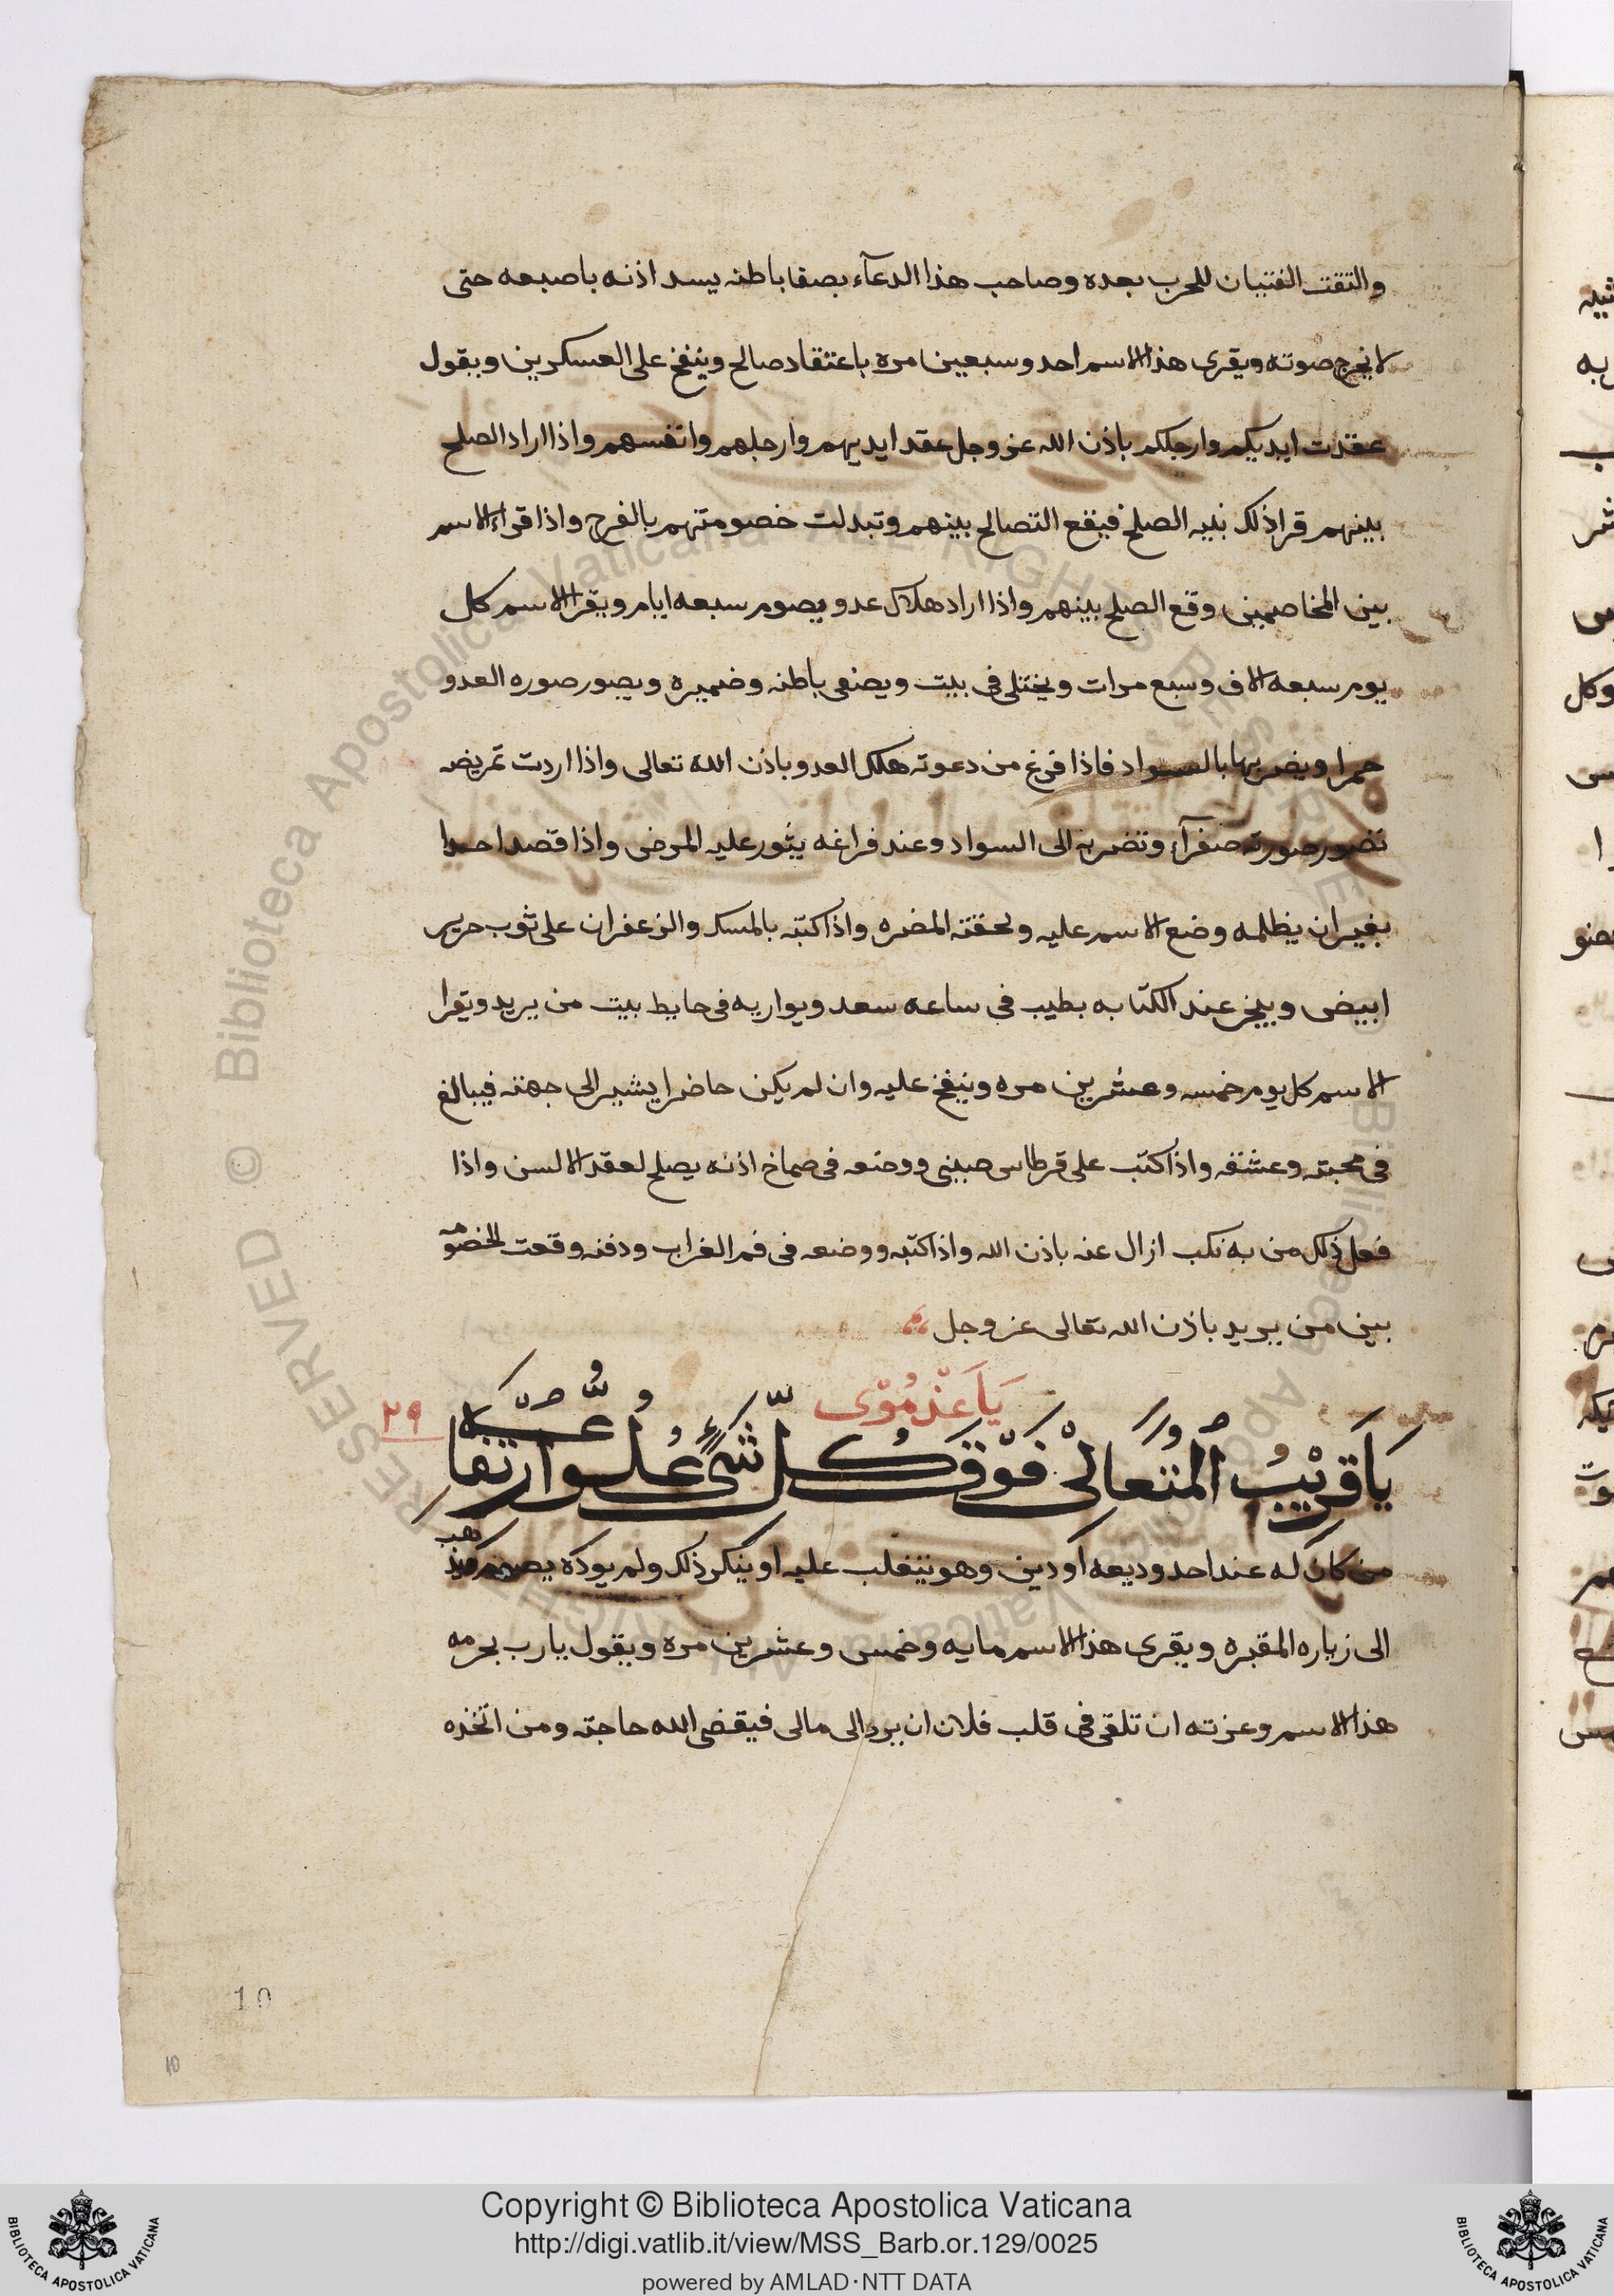 والتقت الفئتان للحرب بعده وصاحب هذا الدعآء بصفا باطنه يسد اذنه باصبعه حتى
لا يخرج صوته ويقرى هذا الاسم احد وسبعين مره باعتقاد صالح وينفخ على العسكرين ويقول
عقدت ايديكم وارجلكم باذن الله عز وجل عقد ايديهم وارجلهم وانفسهم واذا اراد الصلح
بينهم قرا ذلك بنيه الصلح فيقع التصالح بينهم وتبدلت خصومتهم بالفرح واذا قراء الاسم
بين المخاصمين وقع الصلح بينهم واذا اراد هلاك عدو يصوم سبعه ايام ويقرا الاسم كل
يوم سبعه الاف وسبع مرات ويختلى فى بيت ويصفى باطنه وضميره ويصور صوره العدو
حمرا ويضربها بالسواد فاذا فرغ من دعوته هلك العدو باذن الله تعالى واذا اردت تمريضه
تصور صورته صفرآء وتضربه الى السواد وعند فراغه يثور عليه المرض واذا قصد احدا
بغير ان يظلمه وضع الاسم عليه ولحقته المضره واذا كتبه بالمسك والزعفران على ثوب حرير
ابيض ويبخر عند الكتابه بطيب فى ساعه سعد ويواريه فى حايط بيت من يريد ويقرا
الاسم كل يوم خمسه وعشرين مره وينفخ عليه وان لم يكن حاضرا يشير الى جهته فيبالغ
فى محبته وعشقه واذا كتب على قرطاس صينى ووضعه فى صماخ اذنه يصلح لعقد الالسن واذا
فعل ذلك من به نكب ازال عنه باذن الله واذا كتبه ووضعه فى فم الغراب ودفنه وقعت الخصومه
بين من يريد باذن الله تعالى عز وجل
يَا عَذْمُوّى
٢٩
يَا قَرِيْبُ الْمُتَعَالِىْ فَوْقَ كُلِّ شَىْءٍ عُلُوُّ ارْتِفَاعِهِ
من كان له عند احد وديعه او دين وهو يتغلب عليه او ينكر ذلك ولم يودّه
الى زياره المقبره ويقرى هذا الاسم مايه وخمس وعشرين مره ويقول يارب بحرمه
هذا الاسم وعزته ان تلقى فى قلب فلان ان يرد الى مالى فيقضى الله حاجته ومن اتخذه
10
10
Copyright © Biblioteca Apostolica Vaticana
http://digi.vatlib.it/view/MSS_Barb.or.129/0025
powered by AMLAD·NTT DATA
BIBLIOTECA APOSTOLICA VATICANA
BIBLIOTECA APOSTOLICA VATICANA